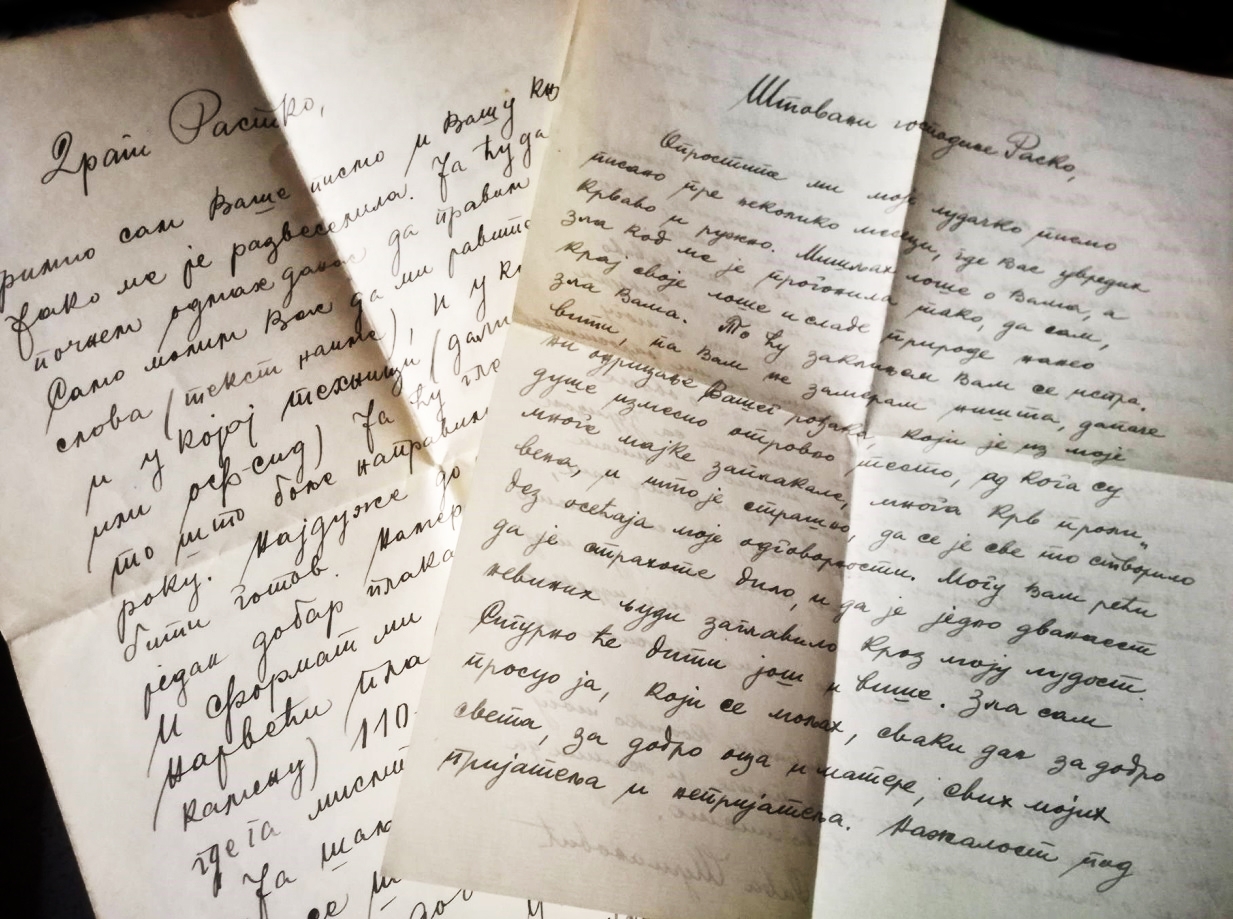 Драги Растко,
примио сам Ваше писмо и Вашу књ
Јако ме је развеселила. Ја ћу да
почнем одмах данас да правим
Само молим Вас да ми јавите
слова (текст наиме), и у к
и у којој техници (дали
или осф-сид) Ја ћу гле
то што боље направим
року. Најдуже до
бити готов. Намер
један добар плака
И формат ми
Највећи пла
камену) 110
где та мисли
Ја шаљ
се
Штовани господине Раско,
Опростите ми моје лудачко писмо
писано пре неколико месеци, где Вас увредих
крваво и ружно. Мишљах лоше о Вама, а
зла код ме је прогонила тако, да сам,
крај своје лоше и сладе природе нанео
зла Вама. То ћу заклињем Вам се испра.
вити, па Вам не замерам ништа, дапаче
ни одрицање Вашег рођака, који је из моје
душе измесио отровно тесто, од кога су
многе мајке заплакале, многа крв проли„
вена, и што је страшно, да се је све то створило
без осећаја моје одговорности. Могу Вам рећи
да је страхоте било, и да је једно дванаест
невиних људи заглавило кроз моју лудост.
Сигурно ће бити још и више. Зла сам
просуо ја, који се молах, сваки дан за добро
света, за добро оца и матере, свих мојих
пријатеља и непријатеља. Нажалост под